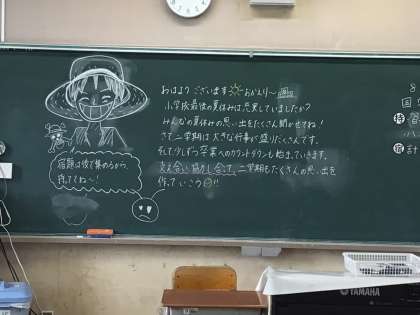 おはようございます おかえり〜
小学校最後の夏休みは充実していましたか?
みんなの夏休みの思い出をたくさん聞かせてね!
さて二学期は大きな行事が盛りだくさんです。
そして少しずつ卒業へのカウントダウンも始まっていきます。
支え合い協力し合って、二学期もたくさんの思い出を
作っていこう!!
宿題は後で集めるから、
待っててね〜!
8
持
宿 計
YAMAHA